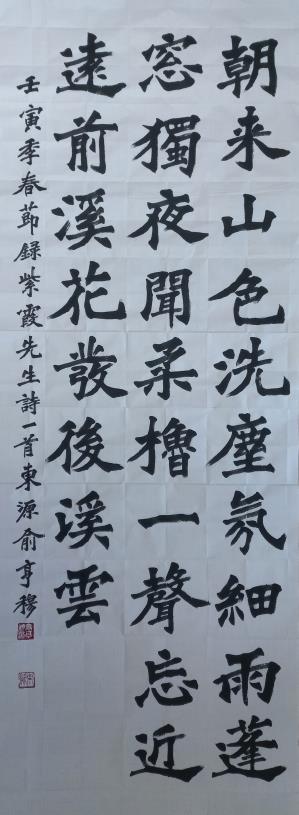 朝来山色洗塵氛細雨蓬
窓獨夜聞柔櫓一聲忘近
遠前溪花發後溪雲
壬寅季春節録紫霞先生詩一首東源俞亨穆